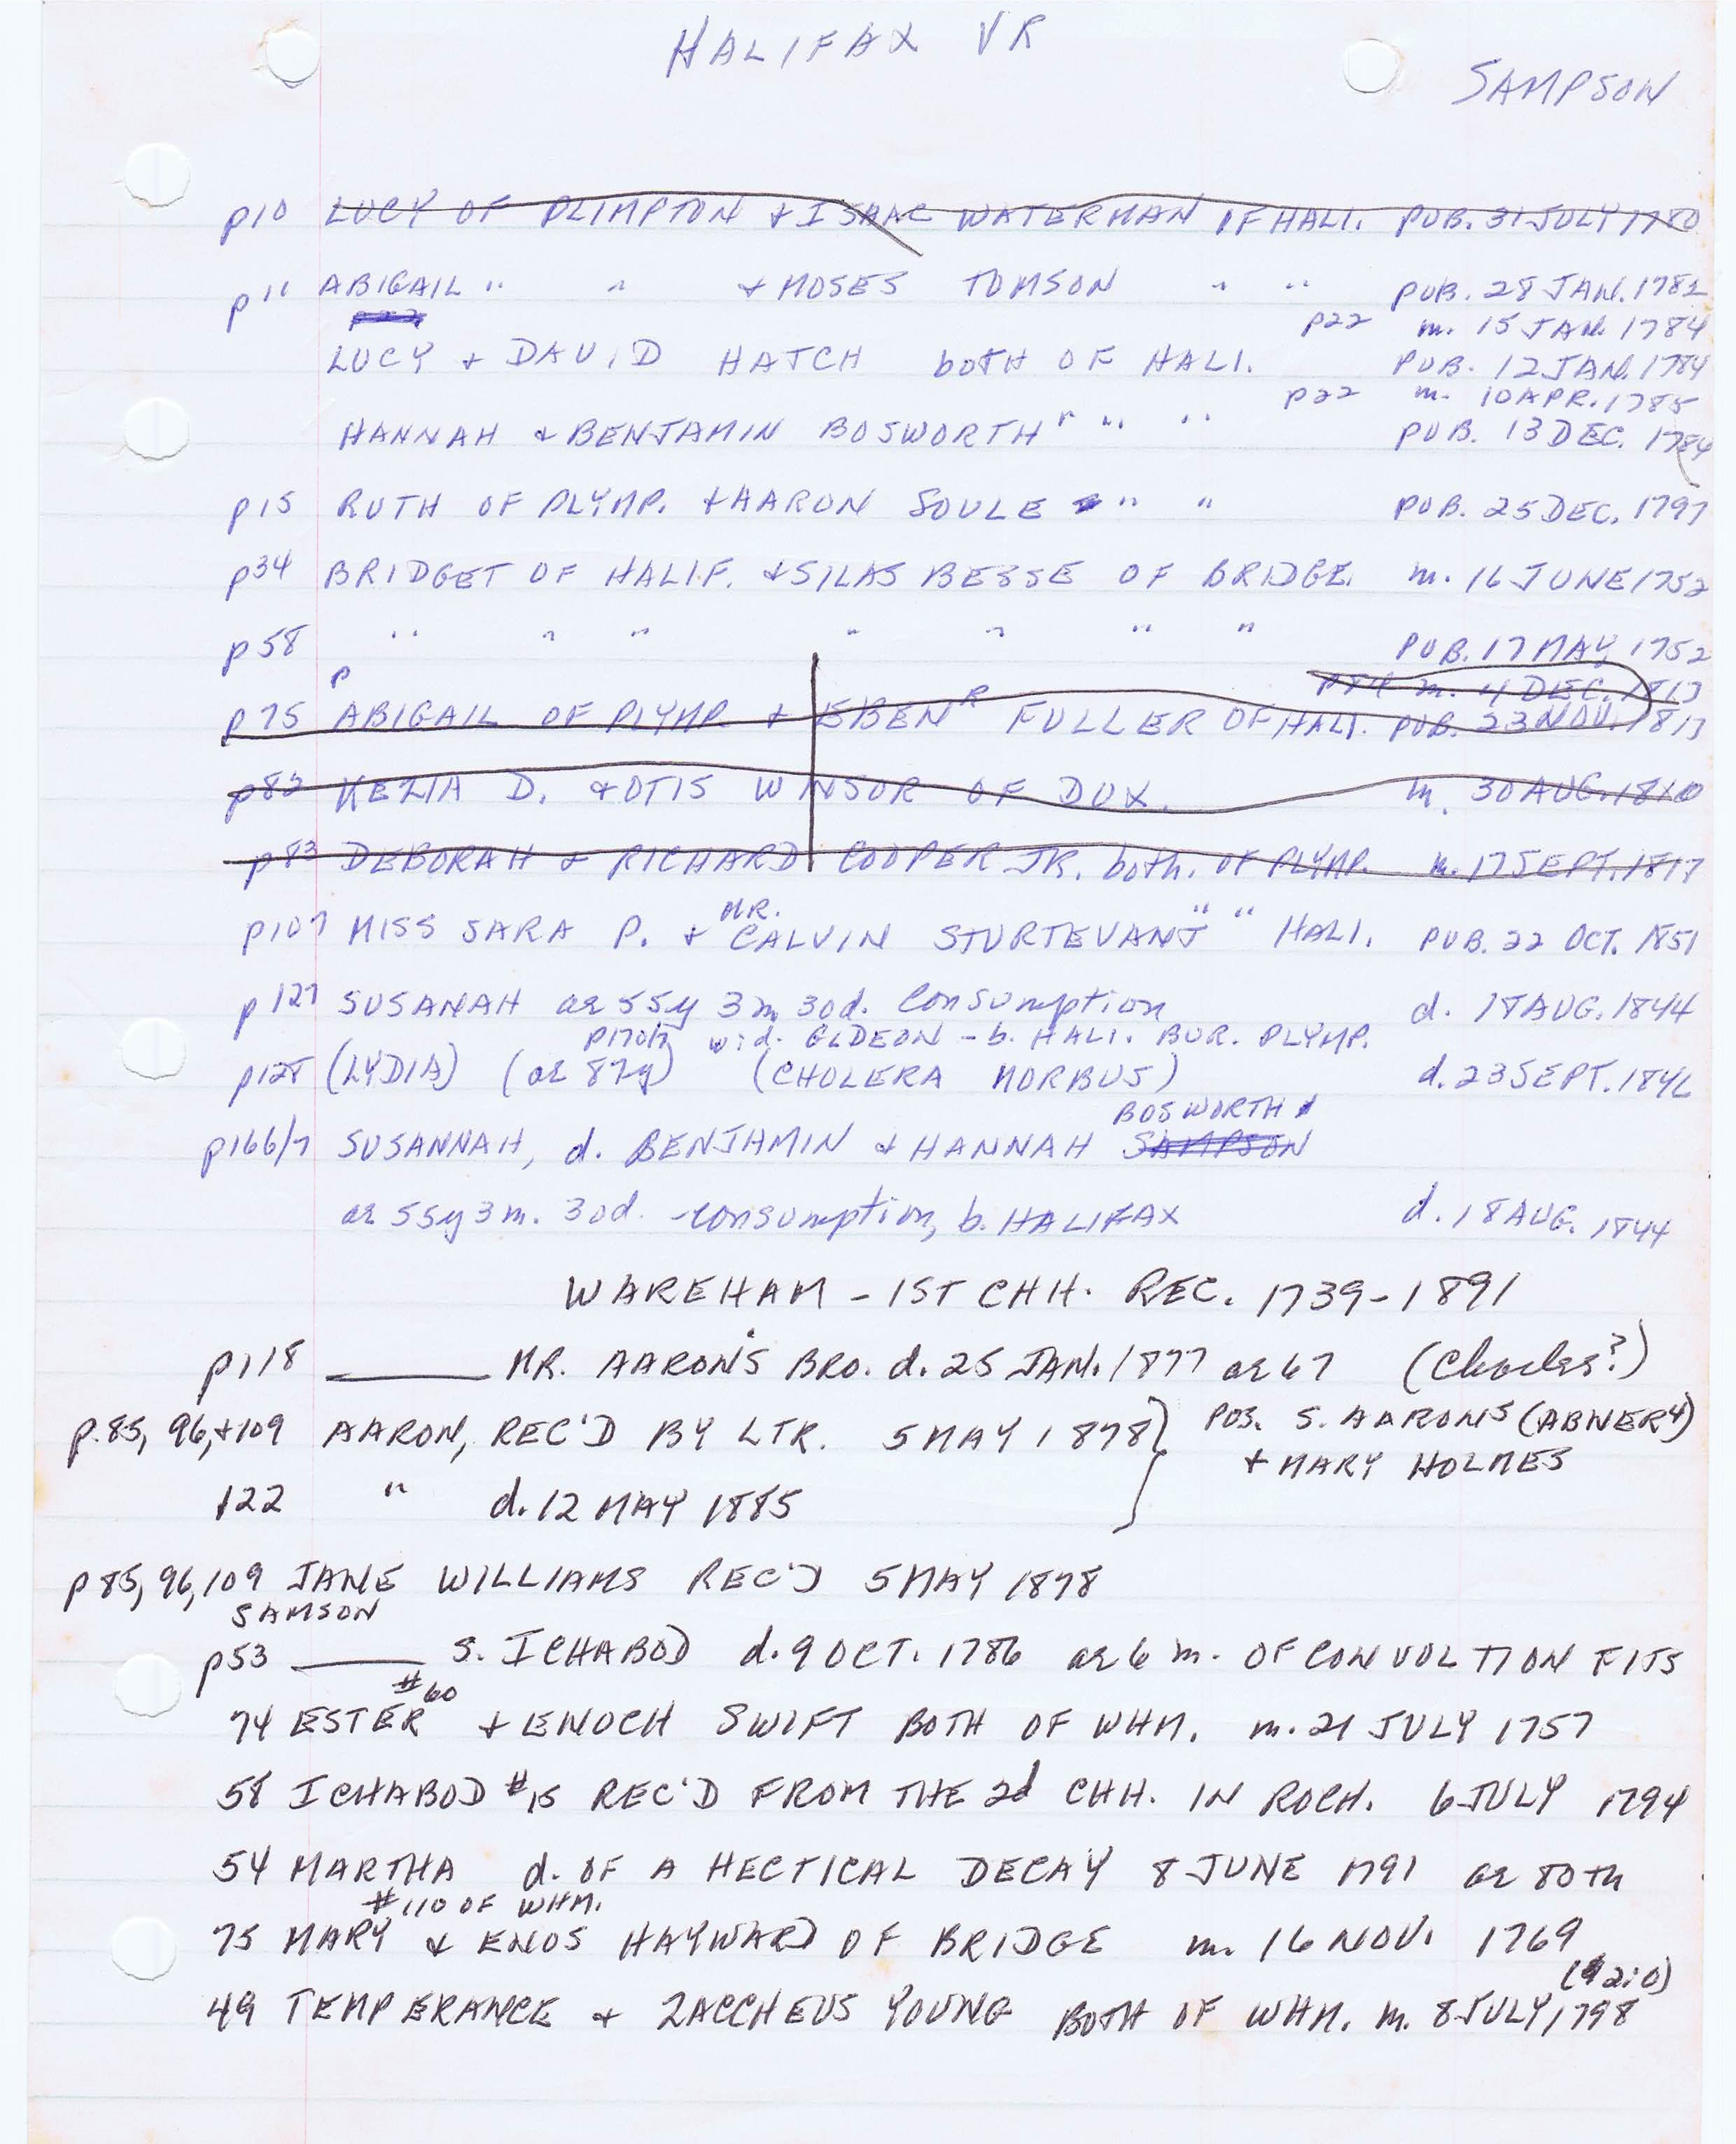 HALIFAX VR
SAMPSON
p10 LUCY OF PLIMPTON + ISAAC WATERMAN OF HALI. PUB. 31 JULY 1780
p11 ABIGAIL " " + MOSES TOMSON " " PUB. 28 JAN. 1782
p22 p22 m. 15 JAN. 1784
LUCY + DAVID HATCH both OF HALI. PUB. 12 JAN. 1784
p22 m. 10 APR. 1785
HANNAH + BENJAMIN BOSWORTH " " " PUB. 13 DEC. 1784
p15 RUTH OF PLYMP. + AARON SOULE " " PUB. 25 DEC. 1797
p34 BRIDGET OF HALIF. + SILAS BESSE OF BRIDGE. m. 16 JUNE 1752
p58 " " " " " " " PUB. 17 MAY, 1752
p p84 m. 4 DEC. 1813
p75 ABIGAIL OF PLYMP. + EBENR FULLER OF HALI. PUB. 23 NOV. 1813
p82 KEZIA D. + OTIS WINSOR OF DUX. m. 30 AUG. 1810
p83 DEBORAH + RICHARD COOPER JR. both. OF PLYMP. m. 17 SEPT. 1817
MR.
p107 MISS SARA P. + CALVIN STURTEVANT " " HALI. PUB. 22 OCT. 1851
p127 SUSANAH ae 55y 3m 30d. Consumption d. 18 AUG. 1844
p170/1 wid. GEDEON - b. HALI. BUR. PLYMP.
p128 (LYDIA) (ae 87y) (CHOLERA MORBUS) d. 23 SEPT. 1846
BOSWORTH
p166/7 SUSANNAH, d. BENJAMIN + HANNAH SAMPSON
ae 55y 3m. 30d. -consumption, b. HALIFAX d. 18 AUG. 1844
WAREHAM - 1ST CHH. REC. 1739-1891
p118 ______ MR. AARON'S BRO. d. 25 JAN. 1877 ae 67 (Charles?)
p.85, 96,+109 AARON, REC'D BY LTR. 5 MAY 1878 } POS. S. AARON5 (ABNER4)
+ MARY HOLMES
122 " d. 12 MAY 1885
p85, 96, 109 JANE WILLIAMS REC'D 5 MAY 1878
SAMSON
p53 ______ S. ICHABOD d. 9 OCT. 1786 ae 6 m. OF CONVULTION FITS
#60
74 ESTER + ENOCH SWIFT BOTH OF WHM. m. 21 JULY 1757
58 ICHABOD #15 REC'D FROM THE 2d CHH. IN ROCH. 6 JULY 1794
54 MARTHA d. OF A HECTICAL DECAY 8 JUNE 1791 ae 80th
#110 OF WHM.
75 MARY + ENOS HAYWARD OF BRIDGE m. 16 NOV. 1769
49 TEMPERANCE + ZACCHEUS YOUNG BOTH OF WHM. m. 8 JULY, 1798